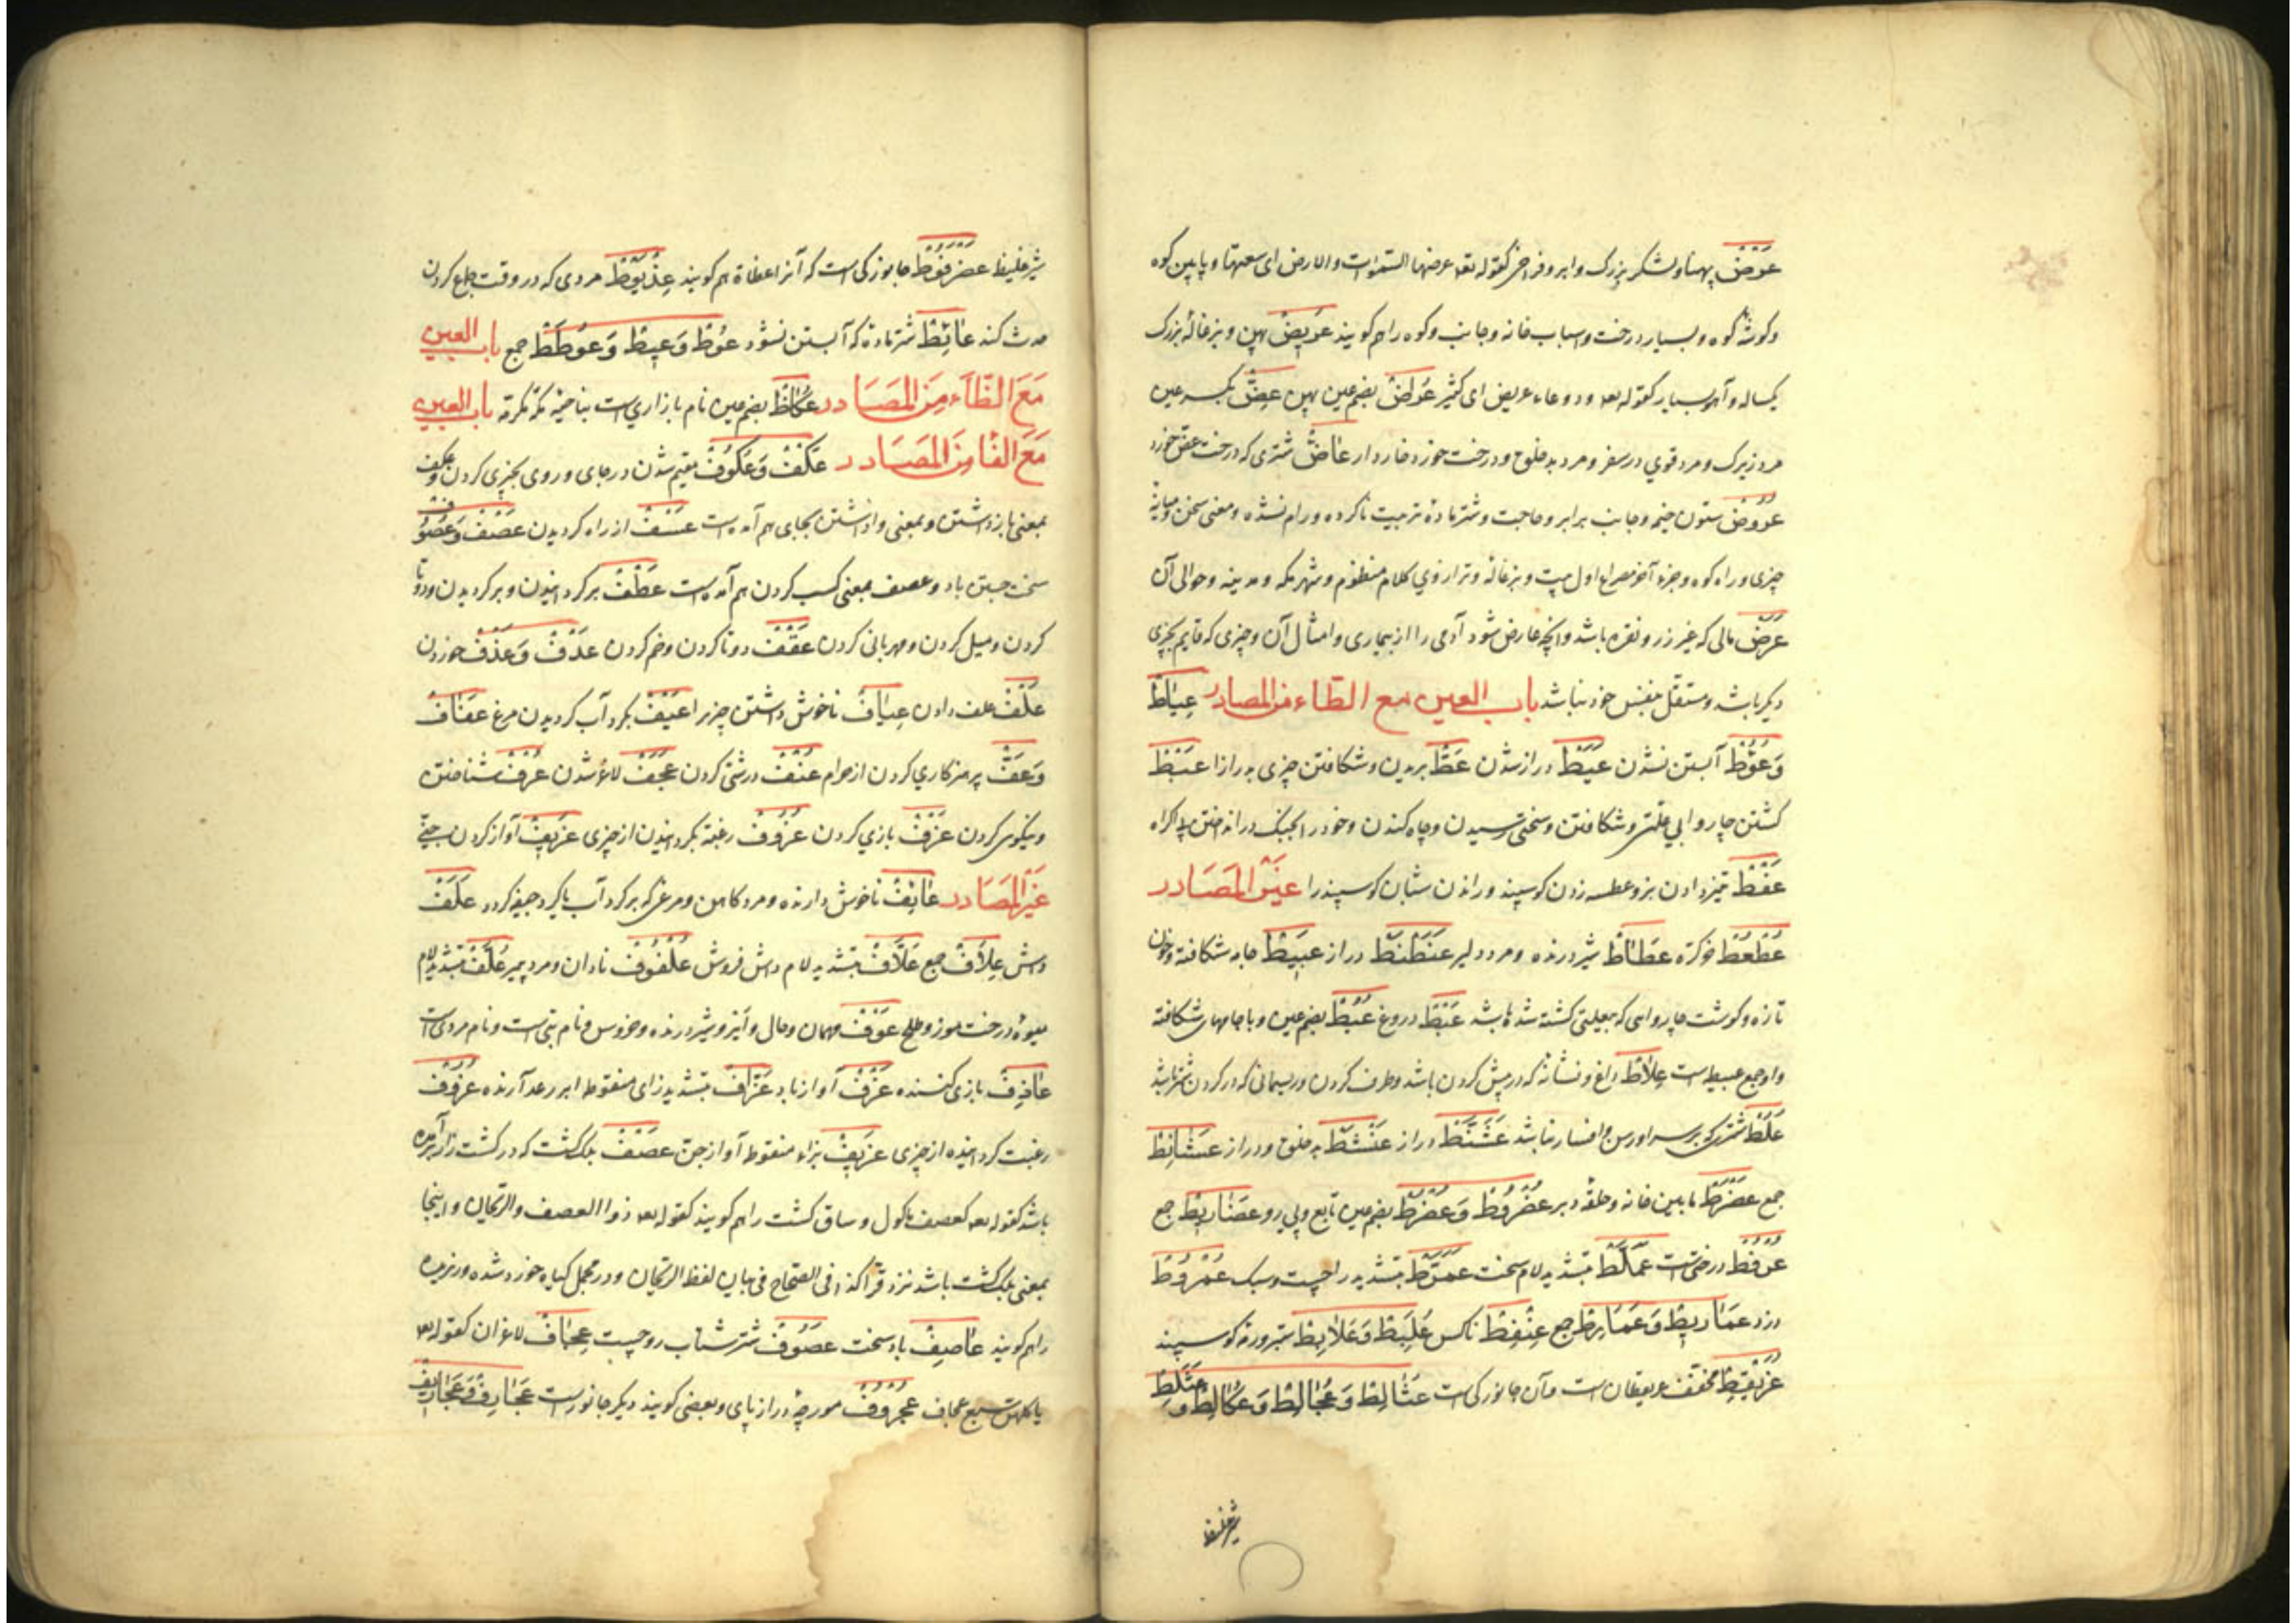 عَرْض پهنا و لشکر بزرک و ابر و فراخی کقوله تعه عرضها السموات والارض ای سعتها و پایین کوه
و کوشهٔ کوه و بسیار درخت و اسباب خانه و جانب و کوه را هم کویند عَرِیض پهن و بزغالهٔ بزرک
یکساله و آهو بسیار کقوله تعه و دعاء عریض ای کثیر عُراض بضم عین پهن عِضّ بکسر عین
مرد زیرک و مرد قوی در سفر و مرد بدخلق و درخت خورد خاردار عاضّ شتری که درخت عض خورد
عَرُوض ستون خیمه و جانب برابر و حاجت و شتر مادهٔ تربیت ناکرده و رام نشده و معنی سخن و میانهٔ
چیزی و راه کوه و جزء آخر مصراع اول بیت و بزغاله و ترازوی کلام منظوم و شهر مکه و مدینه و حوالی آن
عَرَض مالی که غیر زر و نقره باشد و انچه عارض شود آدمی را از بیماری و امثال آن و چیزی که قایم بچیزی
دیکر باشد و مستقل بنفس خود نباشد باب العین مع الطاء من المصادر عِیاط
وَعُوُط آبستن نشدن عَیَط دراز شدن عَطّ بریدن و شکافتن چیزی بدرازا عَبْط
کشتن چاروا بی علتی و شکافتن و سختی رسیدن و چاه کندن و خود را بجنک در انداختن بی اکراه
عَفْط تیز دادن بز و عطسه زدن کوسپند و راندن شبان کوسپند را غَیْر المَصَادر
عُطْعُط خرکره عَطَاط شیر درنده و مرد دلیر عَنَطْنَط دراز عَبِیط جامه شکافته و خون
تازه و کوشت چاروایی که بی علتی کشته شده باشد عَبْط دروغ عُبُط بضم عین و با جامهای شکافته
و او جمع عبیط است عِلاط داغ و نشانهٔ که در پیش کردن باشد و طرف کردن و ریسمانی که در کردن شتر باشد
عُلُط شتری که بر سر او رسن و افسار نباشد عَشَنَّط دراز عَنْشَط بدخلق و دراز عَشَانِط
جمع عَضْرَط مابین خانه و حلقهٔ دبر عُضْرُوط وَ عُضْرُط بضم عین تابع و پی رو عَضَارِیط جمع
عُرْفُط درختی است عَمَلَّط بتشدید لام سخت عَمَرَّط بتشدید را چست و سبک عُمْرُوط
دزد عَمَارِیط وَ عَمَارِط جمع عِنْفِط ناکس عُلَبِط وَ عُلابِط ستبر و رمهٔ کوسپند
عُرَیْقِط مخفف عریقطان است و آن جانورکی است عُثَالِط وَ عُجَالِط وَ عُکَالِط وَ عُثَلِط
شیر غلیظ
شیر غلیظ عَضْرَفُوط جانورکی است که آنرا عظاة هم کویند عِذْیَوْط مردی که در وقت جماع کردن
حدث کند عَائِط شتر ماده که آبستن نشود عُوط وَ عِیط وَ عُوطَط جمع باب العین
مَعَ الظَّاءِ مِنَ المَصَادر عُکَاظ بضم عین نام بازاری است بناحیهٔ مکه مکرمه باب العین
مَعَ الفَا مِنَ المَصَادر عَکْف وَ عُکُوف مقیم شدن در جای و روی بچیزی کردن و عکف
بمعنی بازداشتن و بمعنی واداشتن بجای هم آمده است عَسْف از راه کردیدن عَصْف وَ عُصُوف
سخت جستن باد و عصف بمعنی کسب کردن هم آمده است عَطْف برکردانیدن و برکردیدن و دوتا
کردن و میل کردن و مهربانی کردن عَقْف دوتا کردن و خم کردن عَدْف وَ عَذْف خوردن
عَلْف علف دادن عِیَاف ناخوش داشتن چیز را عَیْف بکرد آب کردیدن مرغ عَفَاف
وَ عَفّ پرهیزکاری کردن از حرام عُنْف درشتی کردن عَجَف لاغر شدن عُرْف شناختن
و نیکویی کردن عَزْف بازی کردن عُزُوف رغبت بکردانیدن از چیزی عَزِیف آواز کردن جن
غَیْر المَصَادر عَائِف ناخوش دارنده و مرد کاهن و مرغی که برکرد آب یا کرد جیفه کردد عَلَف
واش عِلاف جمع عَلَّاف بتشدید لام واش فروش عُلْفُوف نادان و مرد پیر عُلَّف بتشدید لام
میوهٔ درخت موز و طلح عَوْف مهمان و حال و آنیز و شیر درنده و خروس و نام بتی است و نام مردی است
عَازِف بازی کننده عَزْف آواز باد عَزَّاف بتشدید زای منقوطه ابر رعد آرنده عَزُوف
رغبت کردانیده از چیزی عَزِیف بزاء منقوطه آواز جن عَصْف بلک کشت که در کشت زار برآمده
باشد کقوله تعه کعصف مأکول و ساق کشت را هم کویند کقوله تعه ذو العصف والریحان و اینجا
بمعنی بلک کشت باشد نزد فرّا کذا فی الصحاح فی بیان لفظ الریحان و در مجمل کیاه خورد شده و ریزیده
را هم کویند عَاصِف باد سخت عَصُوف شتر شتاب رو چست عِجَاف لاغران کقوله تعه
یاکلهن سبع عجاف عُجْرُوف مورچهٔ دراز پای و بعضی کویند دیکر جانور است عَجَارِف وَ عَجَارِیف